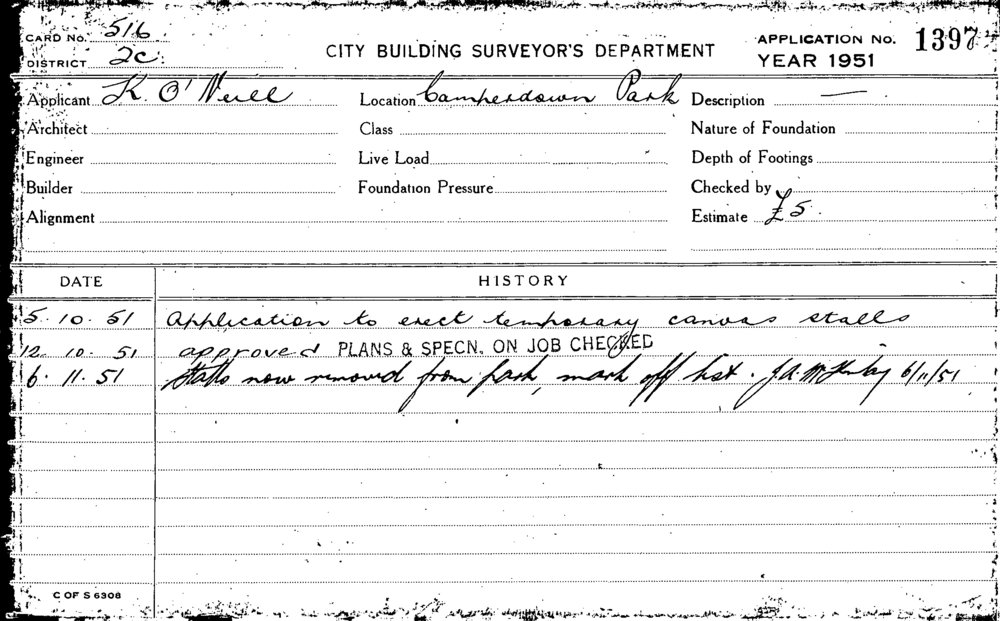 CARD NO. 516
DISTRICT 2C.
CITY BUILDING SURVEYOR'S DEPARTMENT
APPLICATION NO. 1397
YEAR 1951
Applicant K. O'Neill Location Camperdown Park Description —
Architect Class Nature of Foundation
Engineer Live Load Depth of Footings
Builder Foundation Pressure Checked by
Alignment Estimate £5.
DATE HISTORY
5.10.51 Application to erect temporary canvas stalls
12.10.51 approved PLANS & SPECN. ON JOB CHECKED
6.11.51 Stalls now removed from park, mark off list. J.A. 6/11/51
C OF S 6308